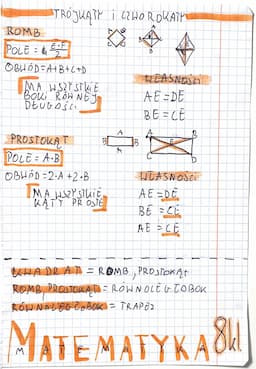 TRÓJKĄTY I CZWOROKĄTY
ROMB
POLE = E·F / 2
OBWÓD=A+B+C+D
MA WSZYSTKIE
BOKI RÓWNEJ
DŁUGOŚCI.
WŁASNOŚCI
AE=DE
BE=CE
PROSTOKĄT
POLE=A·B
OBWÓD=2·A+2·B
MA WSZYSTKIE
KĄTY PROSTE
A
B B
A
A B
E
D C
WŁASNOŚCI
AE=DE
BE=CE
AE=CE
KWADRAT = ROMB, PROSTOKĄT
ROMB, PROSTOKĄT = RÓWNOLEGŁOBOK
RÓWNOLEGŁOBOK = TRAPEZ
MATEMATYKA 8kl